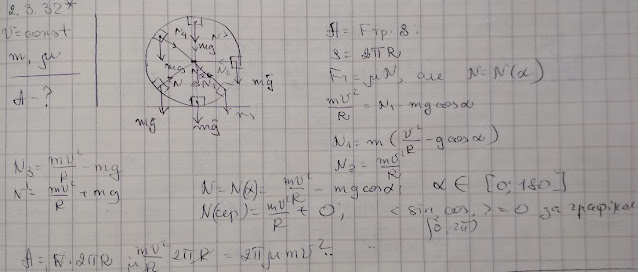 2.3.32*
v = const
m, μ
A - ?
N₄ N
mg
mg N₂
N N₁ mg
mg mg
A = Fтр. S:
S = 2πR
F₁ = μN, але N = N(α)
mv²/R = N₁ - mg cosα
N₁ = m(v²/R - g cosα)
N₂ = mv²/R
N₃ = mv²/R - mg
N = mv²/R + mg
N = N(α) = mv²/R - mg cosα; α ∈ [0; 180]
N(сер) = mv²/R + 0; <sin, cos> = 0 за графіком
[0, 2π)
A = F · 2πR = μ mv²/R 2πR = 2πμmv²